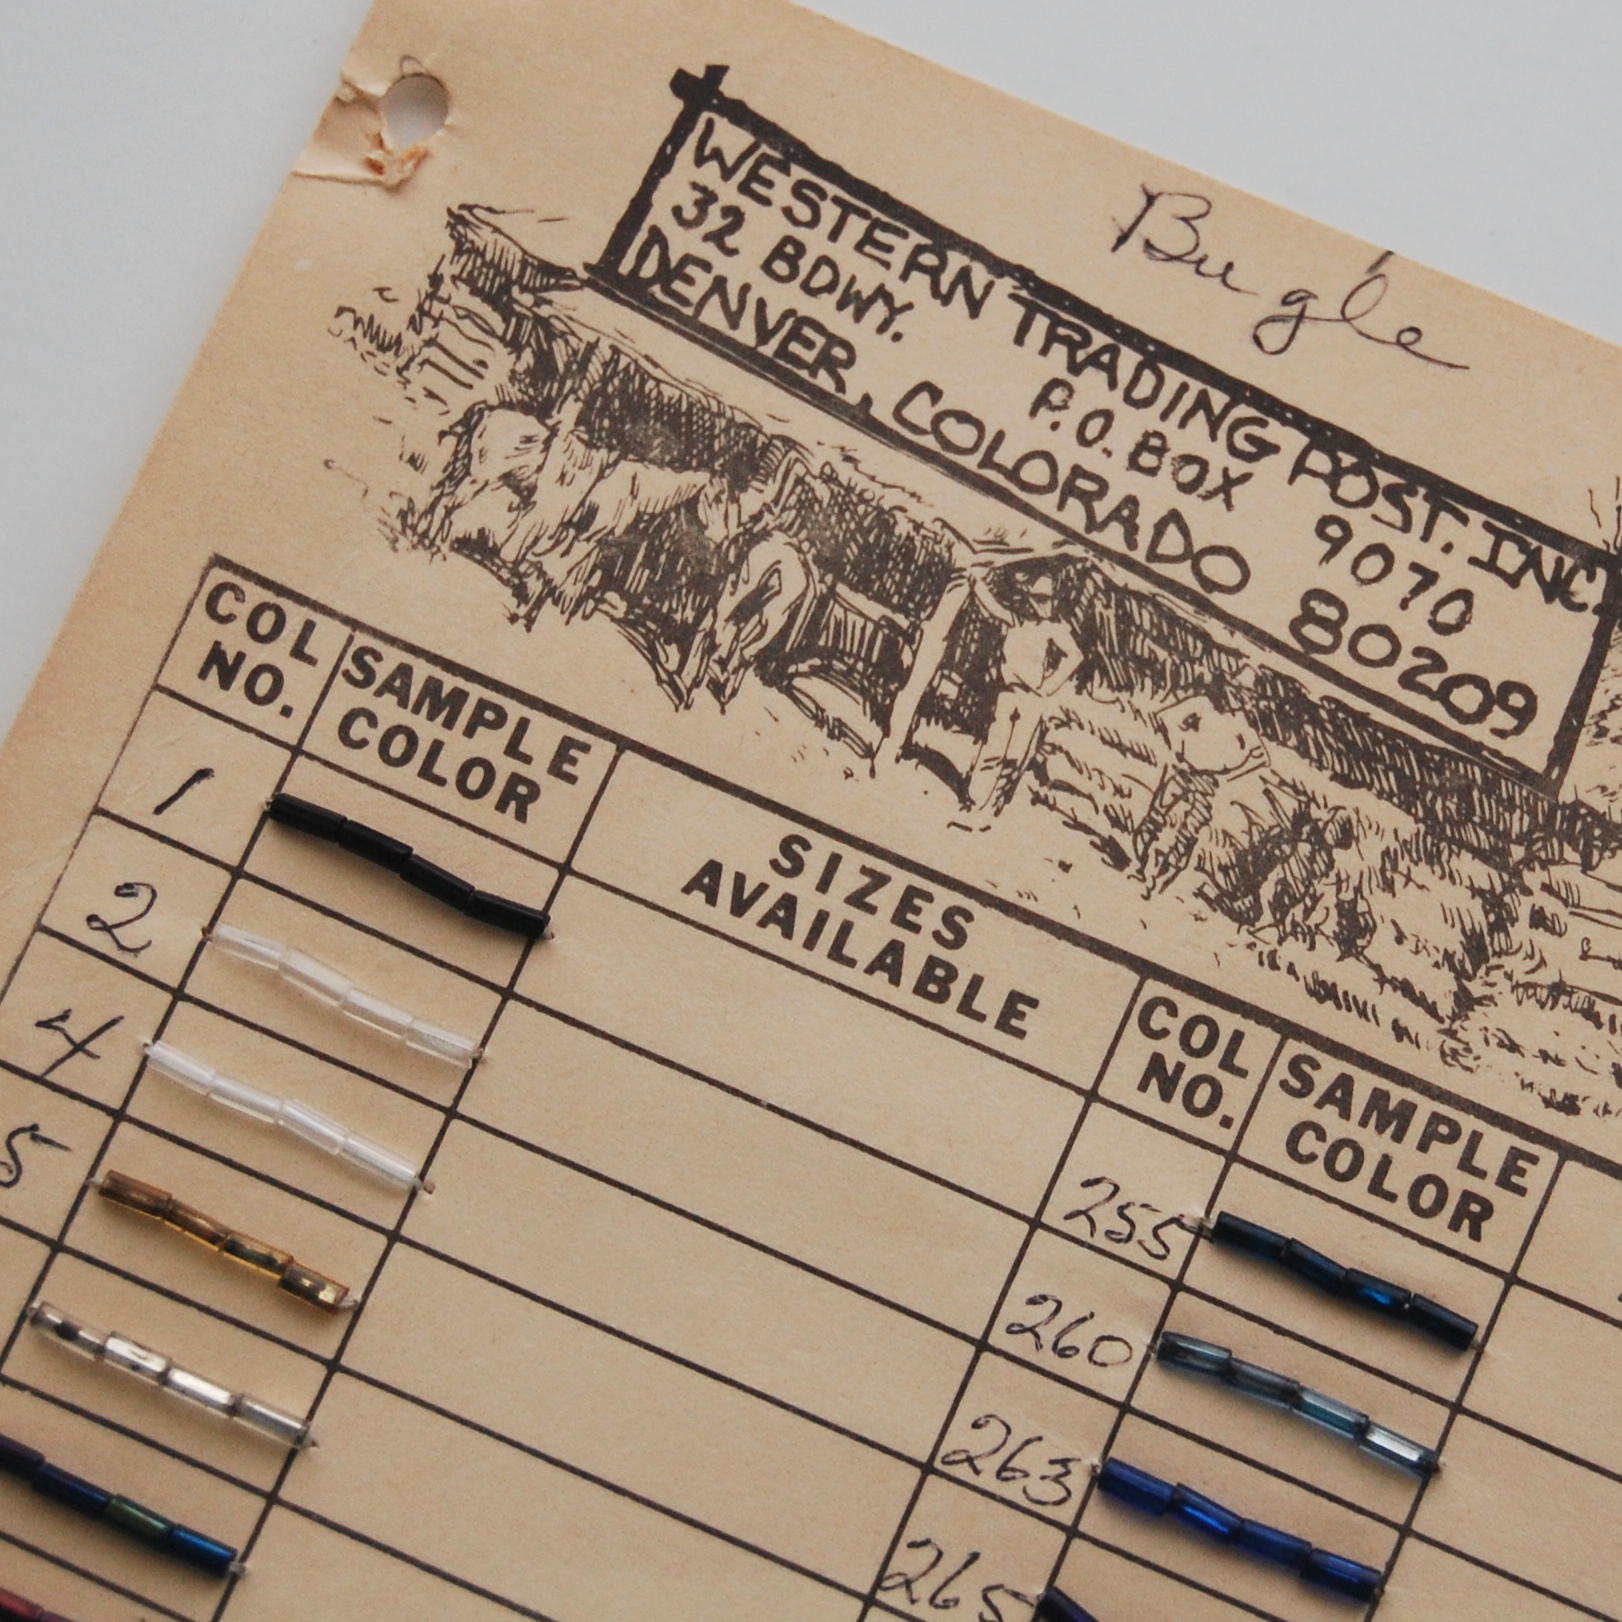 Bugle
WESTERN TRADING POST. INC.
32 BDWY. P.O. BOX 9070
DENVER, COLORADO 80209
COL NO.
SAMPLE COLOR
SIZES AVAILABLE
COL NO.
SAMPLE COLOR
1
2
4
5
255
260
263
265